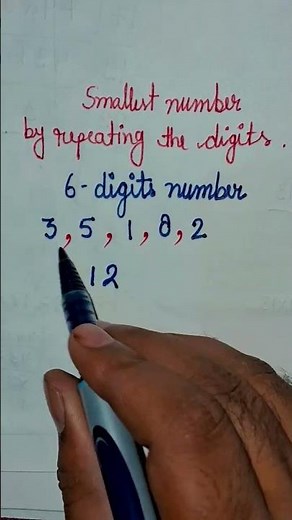 Smallest number
by repeating the digits.
6-digits number
3, 5, 1, 8, 2
12